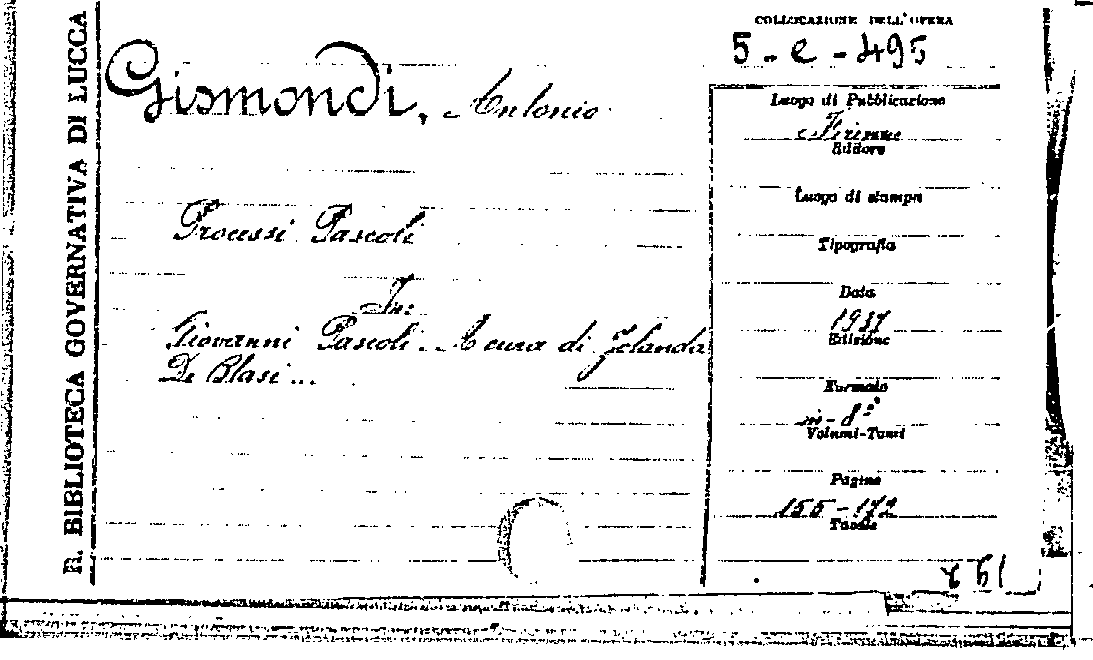 R. BIBLIOTECA GOVERNATIVA DI LUCCA
Gismondi, Antonio
Processi Pascoli
In:
Giovanni Pascoli. A cura di Jolanda
De Blasi...
COLLOCAZIONE DELL'OPERA
5-e-495
Luogo di Pubblicazione
Firenze
Editore
Luogo di stampa
Tipografia
Data
1937
Edizione
Formato
in-8°
Volumi-Tomi
Pagine
155-172
Tavole